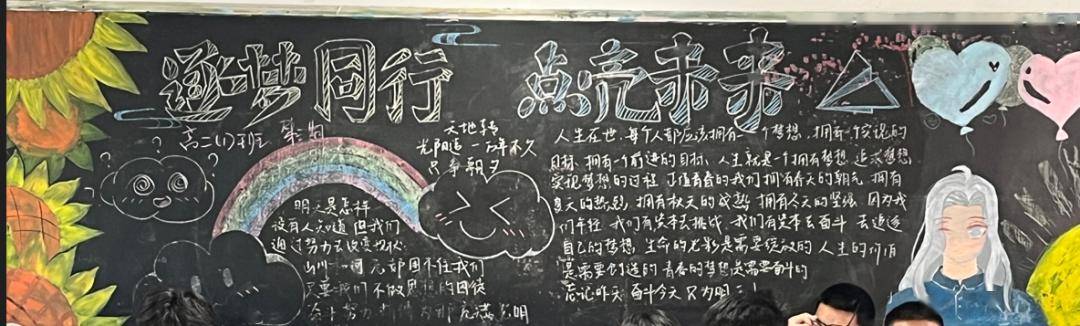 逐梦同行 点亮未来
高二(1)班
天地转
光阴迫 一万年不久
只争朝夕
明天是怎样
没有人知道 但我们
通过努力去改变现状
山川 河 无都困不住我们
只要我们不做思想的囚徒
努力 充满光明
人生在世,每个人都应该拥有一个梦想,拥有一个
目标,拥有一个前进的目标,人生就是一个拥有梦想 追求梦想
实现梦想的过程 正值青春的我们 拥有春天的朝气 拥有
夏天的热烈 拥有秋天的成熟 拥有冬天的坚强 因为我
们年轻 我们有资本去挑战 我们有资本去奋斗 去追逐
自己的梦想 生命的光彩是需要绽放的 人生的价值
是需要创造的 青春的梦想是需要奋斗的
忘记昨天 奋斗今天 只为明